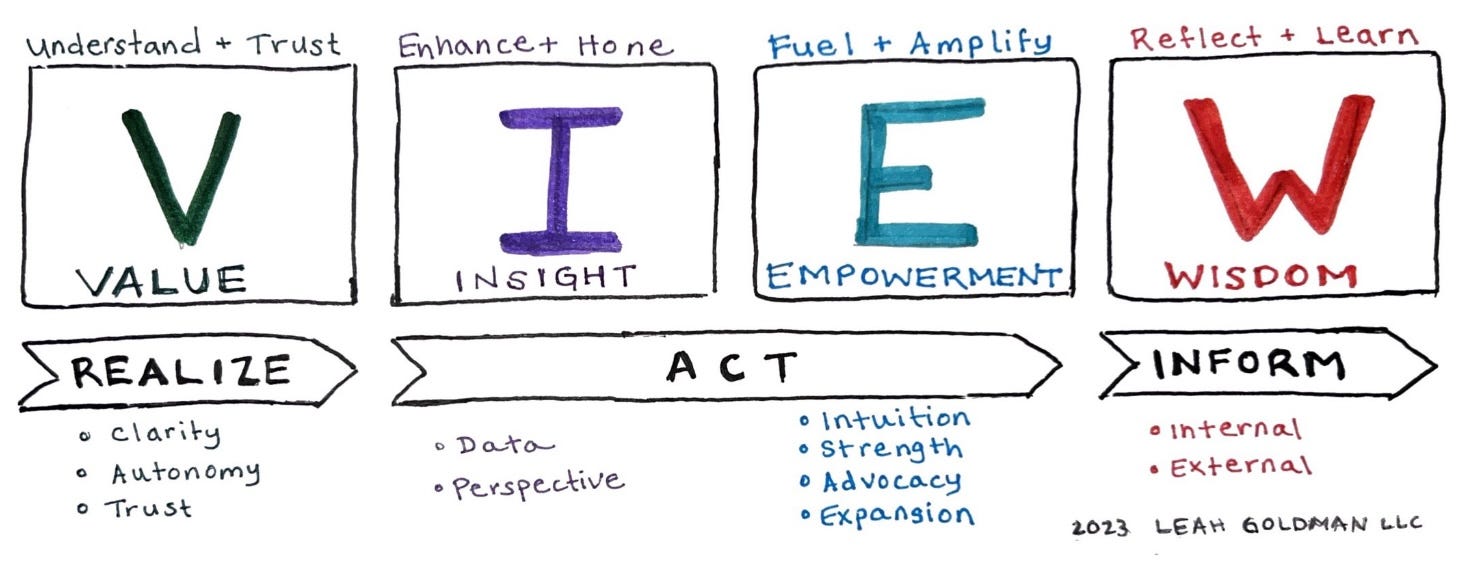 Understand + Trust
V
VALUE
Enhance + Hone
I
INSIGHT
Fuel + Amplify
E
EMPOWERMENT
Reflect + Learn
W
WISDOM
REALIZE
• Clarity
• Autonomy
• Trust
ACT
• Data
• Perspective
• Intuition
• Strength
• Advocacy
• Expansion
INFORM
• Internal
• External
2023 LEAH GOLDMAN LLC